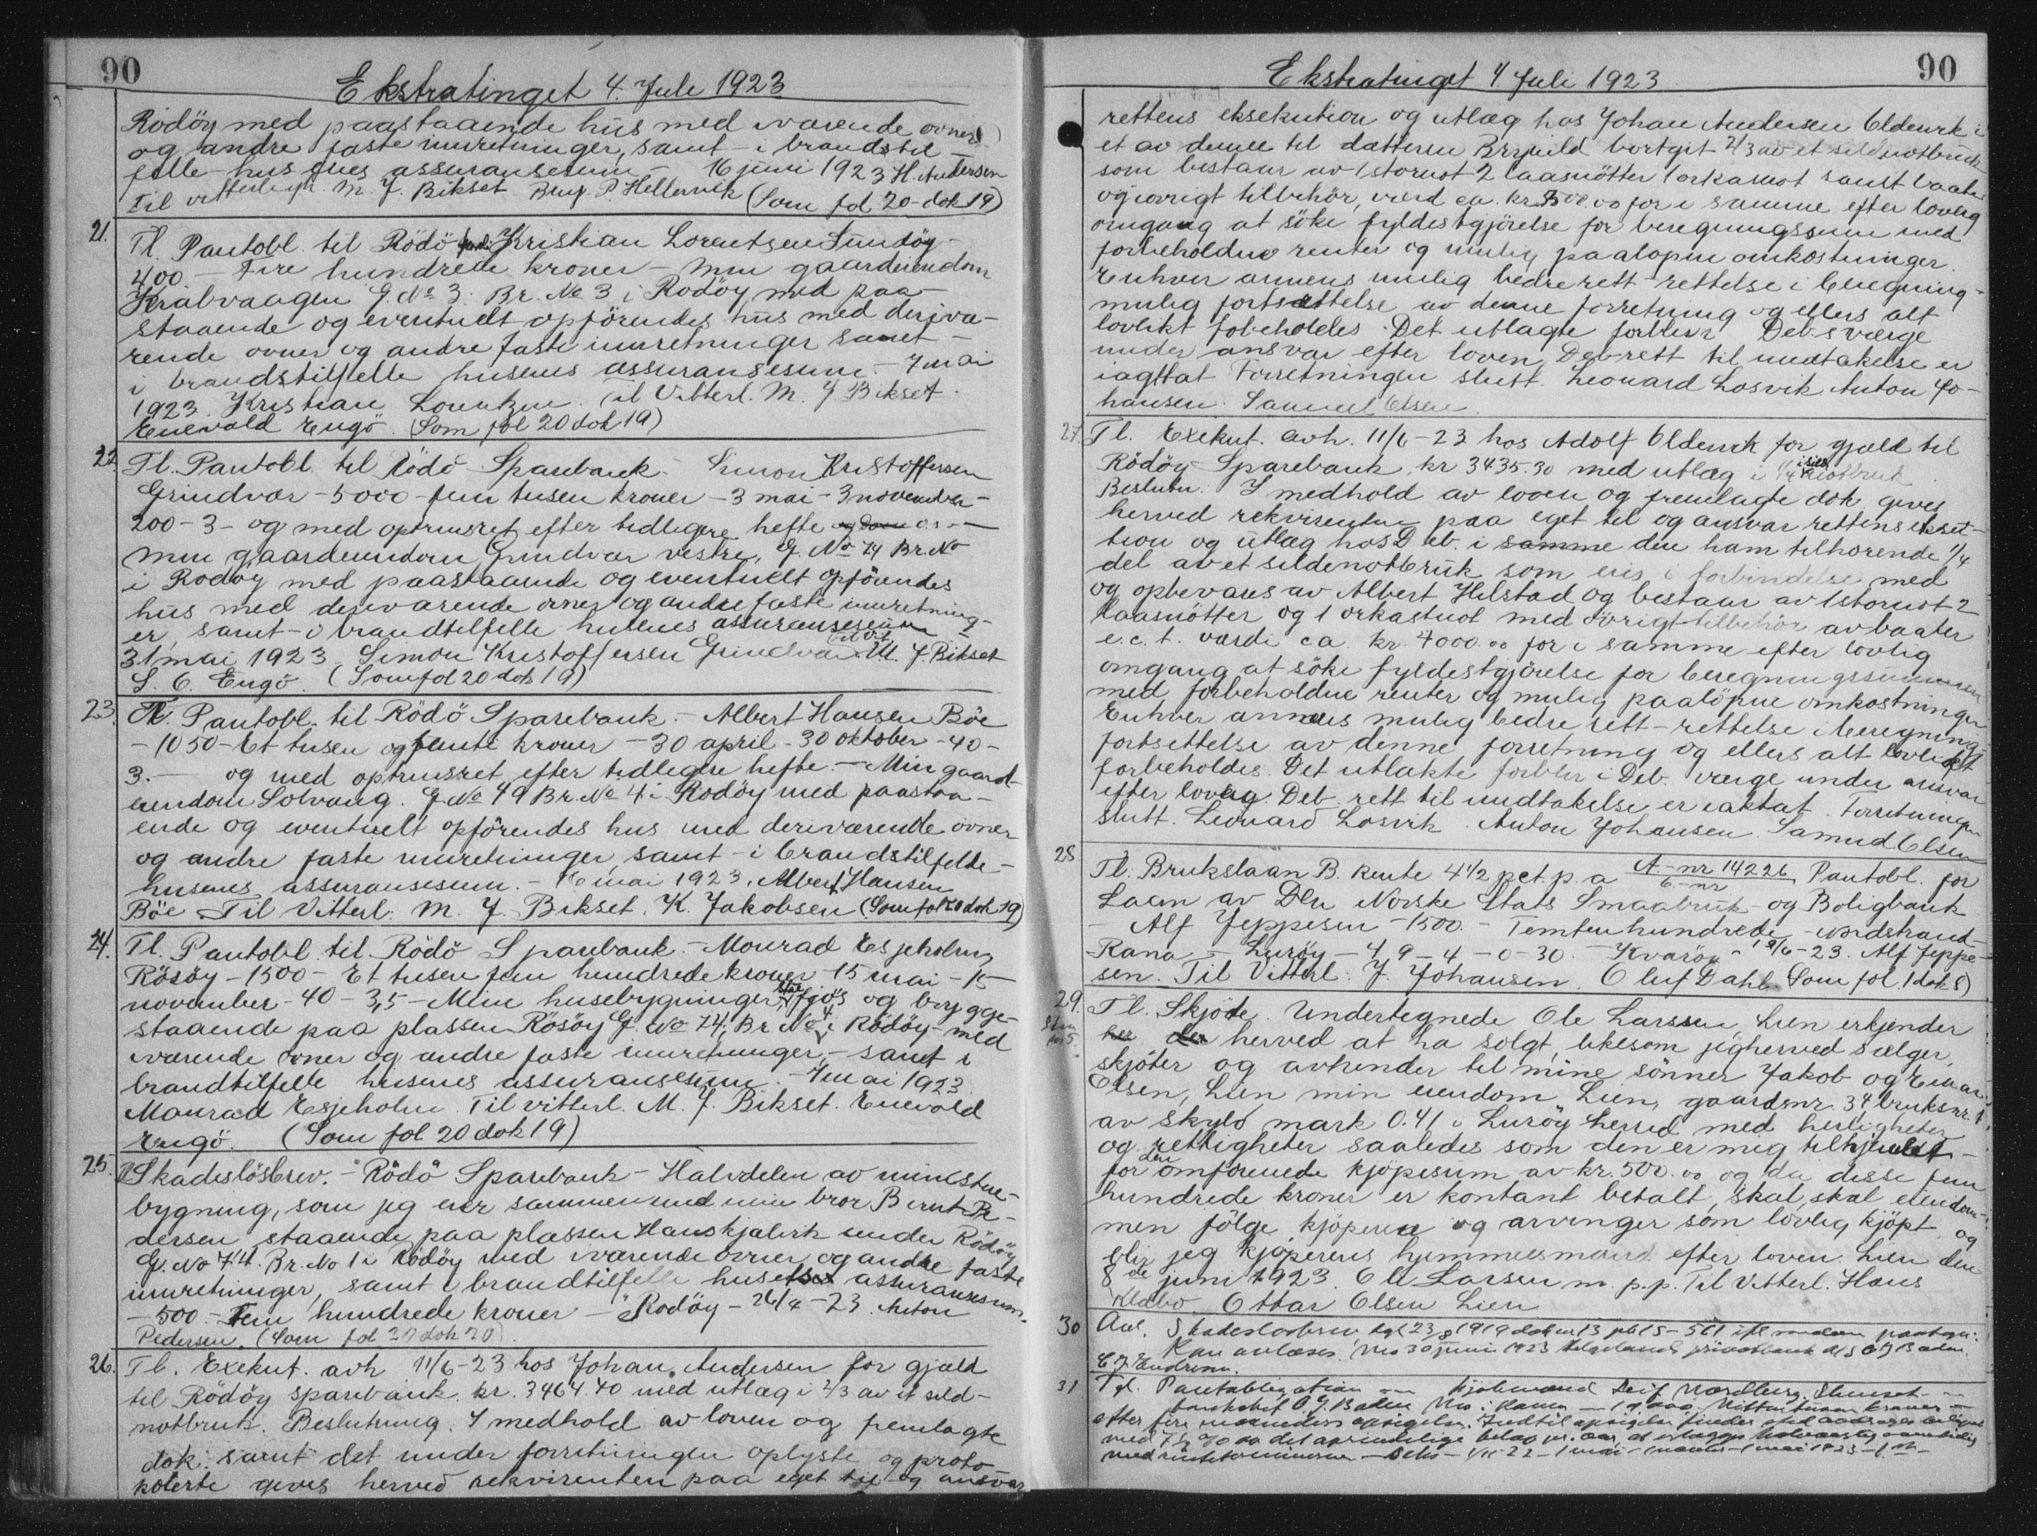 90
Ekstratinget 4. Juli 1923
Rödöy med paastaaende hus med ivarende ovner
og andre faste innretninger, samt i brandstil-
felle husenes assuransesum 16 juni 1923 H. Andersen
Til vitterlighet M. J. Bikset Benj. P. Hellervik (Som fol 20 dok 19)
21. Tl. Pantobl. til Rödö Kristian Lorentsen Sundöy
400 – Fire hundrede kroner – Min gaardeiendom
Krabvaagen G. No 3. Br. No 3 i Rödöy med paa-
staaende og eventuelt opförendes hus med deriva-
rende ovner og andre faste innretninger samt
i brandstilfelle husenes assuransesum. – 7 mai
1923. Kristian Lorentzen. Til Vitterl. M. J. Bikset.
Enevald Engö. (Som fol 20 dok 19)
22. Tl. Pantobl. til Rödö Sparebank – Simon Kristoffersen
Grindvær – 5000 – fem tusen kroner – 3 mai – 3 november –
200 – 3 – og med optrinsret efter tidligere hefte
min gaardeiendom Grindvær vestre, G. No 74 Br. No
i Rödöy med paastaaende og eventuelt opförendes
hus med derivarende ovner og andre faste innretning-
er samt – i brandtilfelle husenes assuransesum
31 mai 1923 Simon Kristoffersen Grindvær Til Vit. M. J. Bikset
S. C. Engö. (Som fol 20 dok 19)
23. Tl. Pantobl. til Rödö Sparebank – Albert Hansen Böe
– 1050 – Et tusen og femti kroner – 30 april – 30 oktober – 40 –
3. – og med optrinsret efter tidligere hefte. – Min gaard-
eiendom Solvang. G. No 49 Br. No 4 i Rödöy med paastaa-
ende og eventuelt opförendes hus med deriværende ovner
og andre faste innretninger samt – i brandstilfelle –
husenes assuransesum. – 16 mai 1923. Albert Hansen
Böe Til Vitterl. M. J. Bikset. K. Jakobsen (Som fol 20 dok 19)
24. Tl. Pantobl. til Rödö Sparebank – Monrad Esjeholm
Rösöy – 1500 – Et tusen fem hundrede kroner – 15 mai – 15
november – 40 – 3,5 – Mine husebygninger, fjös og brygge
staaende paa plassen Rösöy G. No 74, Br. No 4 i Rödöy – med
iværende ovner og andre faste innretninger – samt i
brandtilfelle husenes assuransesum. – 7 mai 1923.
Monrad Esjeholm. Til vitterl. M. J. Bikset. Enevold
Engö. (Som fol 20 dok 19)
25. Skadeslösbrev. – Rödö Sparebank – Halvdelen av min stue-
bygning, som jeg eier sammen med min bror Bernt Pe-
dersen staaende paa plassen Hanskjalvik under Rödöy
G. No 74. Br. No 1 i Rödöy med iværende ovner og andre faste
innretninger, samt i brandtilfelle husets assuransesum.
– 500 – Fem hundrede kroner – Rödöy – 26/4 – 23. Anton
Pedersen. (Som fol 27 dok 20).
26. Tl. Exekut. avh 11/6–23 hos Johan Andersen for gjæld
til Rödöy sparebank kr. 3464.40 med utlæg i 2/3 av et sild-
notbruk. Beslutning. I medhold av loven og fremlagte
dok. samt det under forretningen oplyste og proto-
kolerte gives herved rekvirenten paa eget til og ansvar
90
Ekstratinget 4 Juli 1923
rettens eksekution og utlæg hos Johan Andersen Oldervik i
et av denne til datteren Brynild bortgit 2/3 av et sildnotbruk
som bestaar av 1 stornot 2 laasnötter 1 orkastnot samt baater
og iövrigt tilbehör, værd ca. kr 7500.00 for i samme efter lovlig
omgang at söke fyldestgjörelse for beregningssum med
forbeholdne renter og mulig paalöpne omkostninger.
Enhver annens mulig bedre rett – rettelse i beregning –
mulig fortsættelse av denne forretning og ellers alt
lovlikt forbeholdes. Det utlagte forblir i Deb's værge
under ansvar efter loven. Deb. rett til undtakelse er
iagttat. Forretningen slutt. Leonard Losvik. Anton Jo-
hansen. Samuel Olsen
27. Tl. Exekut. avh. 11/6–23 hos Adolf Oldervik for gjæld til
Rödöy Sparebank kr 3435.30 med utlæg i 1/4 i sildnotbruk.
Beslutn. I medhold av loven og fremlagte dok. gives
herved rekvirenten paa eget til og ansvar rettens ekseku-
tion og utlæg hos Deb. i samme den ham tilhörende 1/4
del av et sildenotbruk som eies i forbindelse med
og opbevares av Albert Hilstad og bestaar av 1 stornot 2
laasnötter og 1 orkastnot med övrigt tilbehör av baater
e.c.t. værdi ca. kr. 4000.00 for i samme efter lovlig
omgang at söke fyldestgjörelse for beregningssummen
med forbeholdne renter og mulig paalöpne omkostninger
Enhver annens mulig bedre rett – rettelse i beregning
fortsettelse av denne forretning og ellers alt lovlight
forbeholdes. Det utlakte forblir i Deb. værge under ansvar
efter lovlig. Deb. rett til undtakelse er iaktat. Forretningen
slutt. Leonard Losvik. Anton Johansen. Samuel Olsen
28. Tl. Brukslaan B. Rente 4 1/2 pct. p.a. A-nr 14226 / b-nr Pantobl. for
Laan av Den Norske Stats Smaabruk og Boligbank
– Alf Jeppesen – 1500 – Femten hundrede – Nordstrand
Rana – Luröy – 49 – 4 – 0 – 30 – Kvaröy – 18/6 – 23. Alf Jeppe-
sen. Til Vitterl. J. Johansen. Oluf Dahl. (Som fol 1 dok 8)
29. Tl. Skjöte. Undertegnede Ole Larssen Lien erkjender
herved at ha solgt, likesom jeg herved sælger,
skjöter og avhender til mine sönner Jakob og Einar
Olsen, Lien min eiendom Lien, gaardsnr. 34 bruksnr. 1
av skyld mark 0.41 i Luröy herred med herligheter
og rettigheter saaledes som den er mig tilhjemlet –
for den omforenede kjöpesum av kr. 500.00 og da disse fem
hundrede kroner er kontant betalt, skal, skal eiendom-
men fölge kjöperne og arvinger som lovlig kjöpt og
blir jeg kjöperens hjemmelsmand efter loven. Lien den
8de juni 1923. Ole Larsen m. p. p. Til Vitterl. Hans
Klæbo. Ottar Olsen Lien
30 Avl. Skadeslösbrev tgl 23/8 1919
Kan avlæses. Mo 30 juni 1923 Helgelands privatbank
31 Tgl. Pantobligation